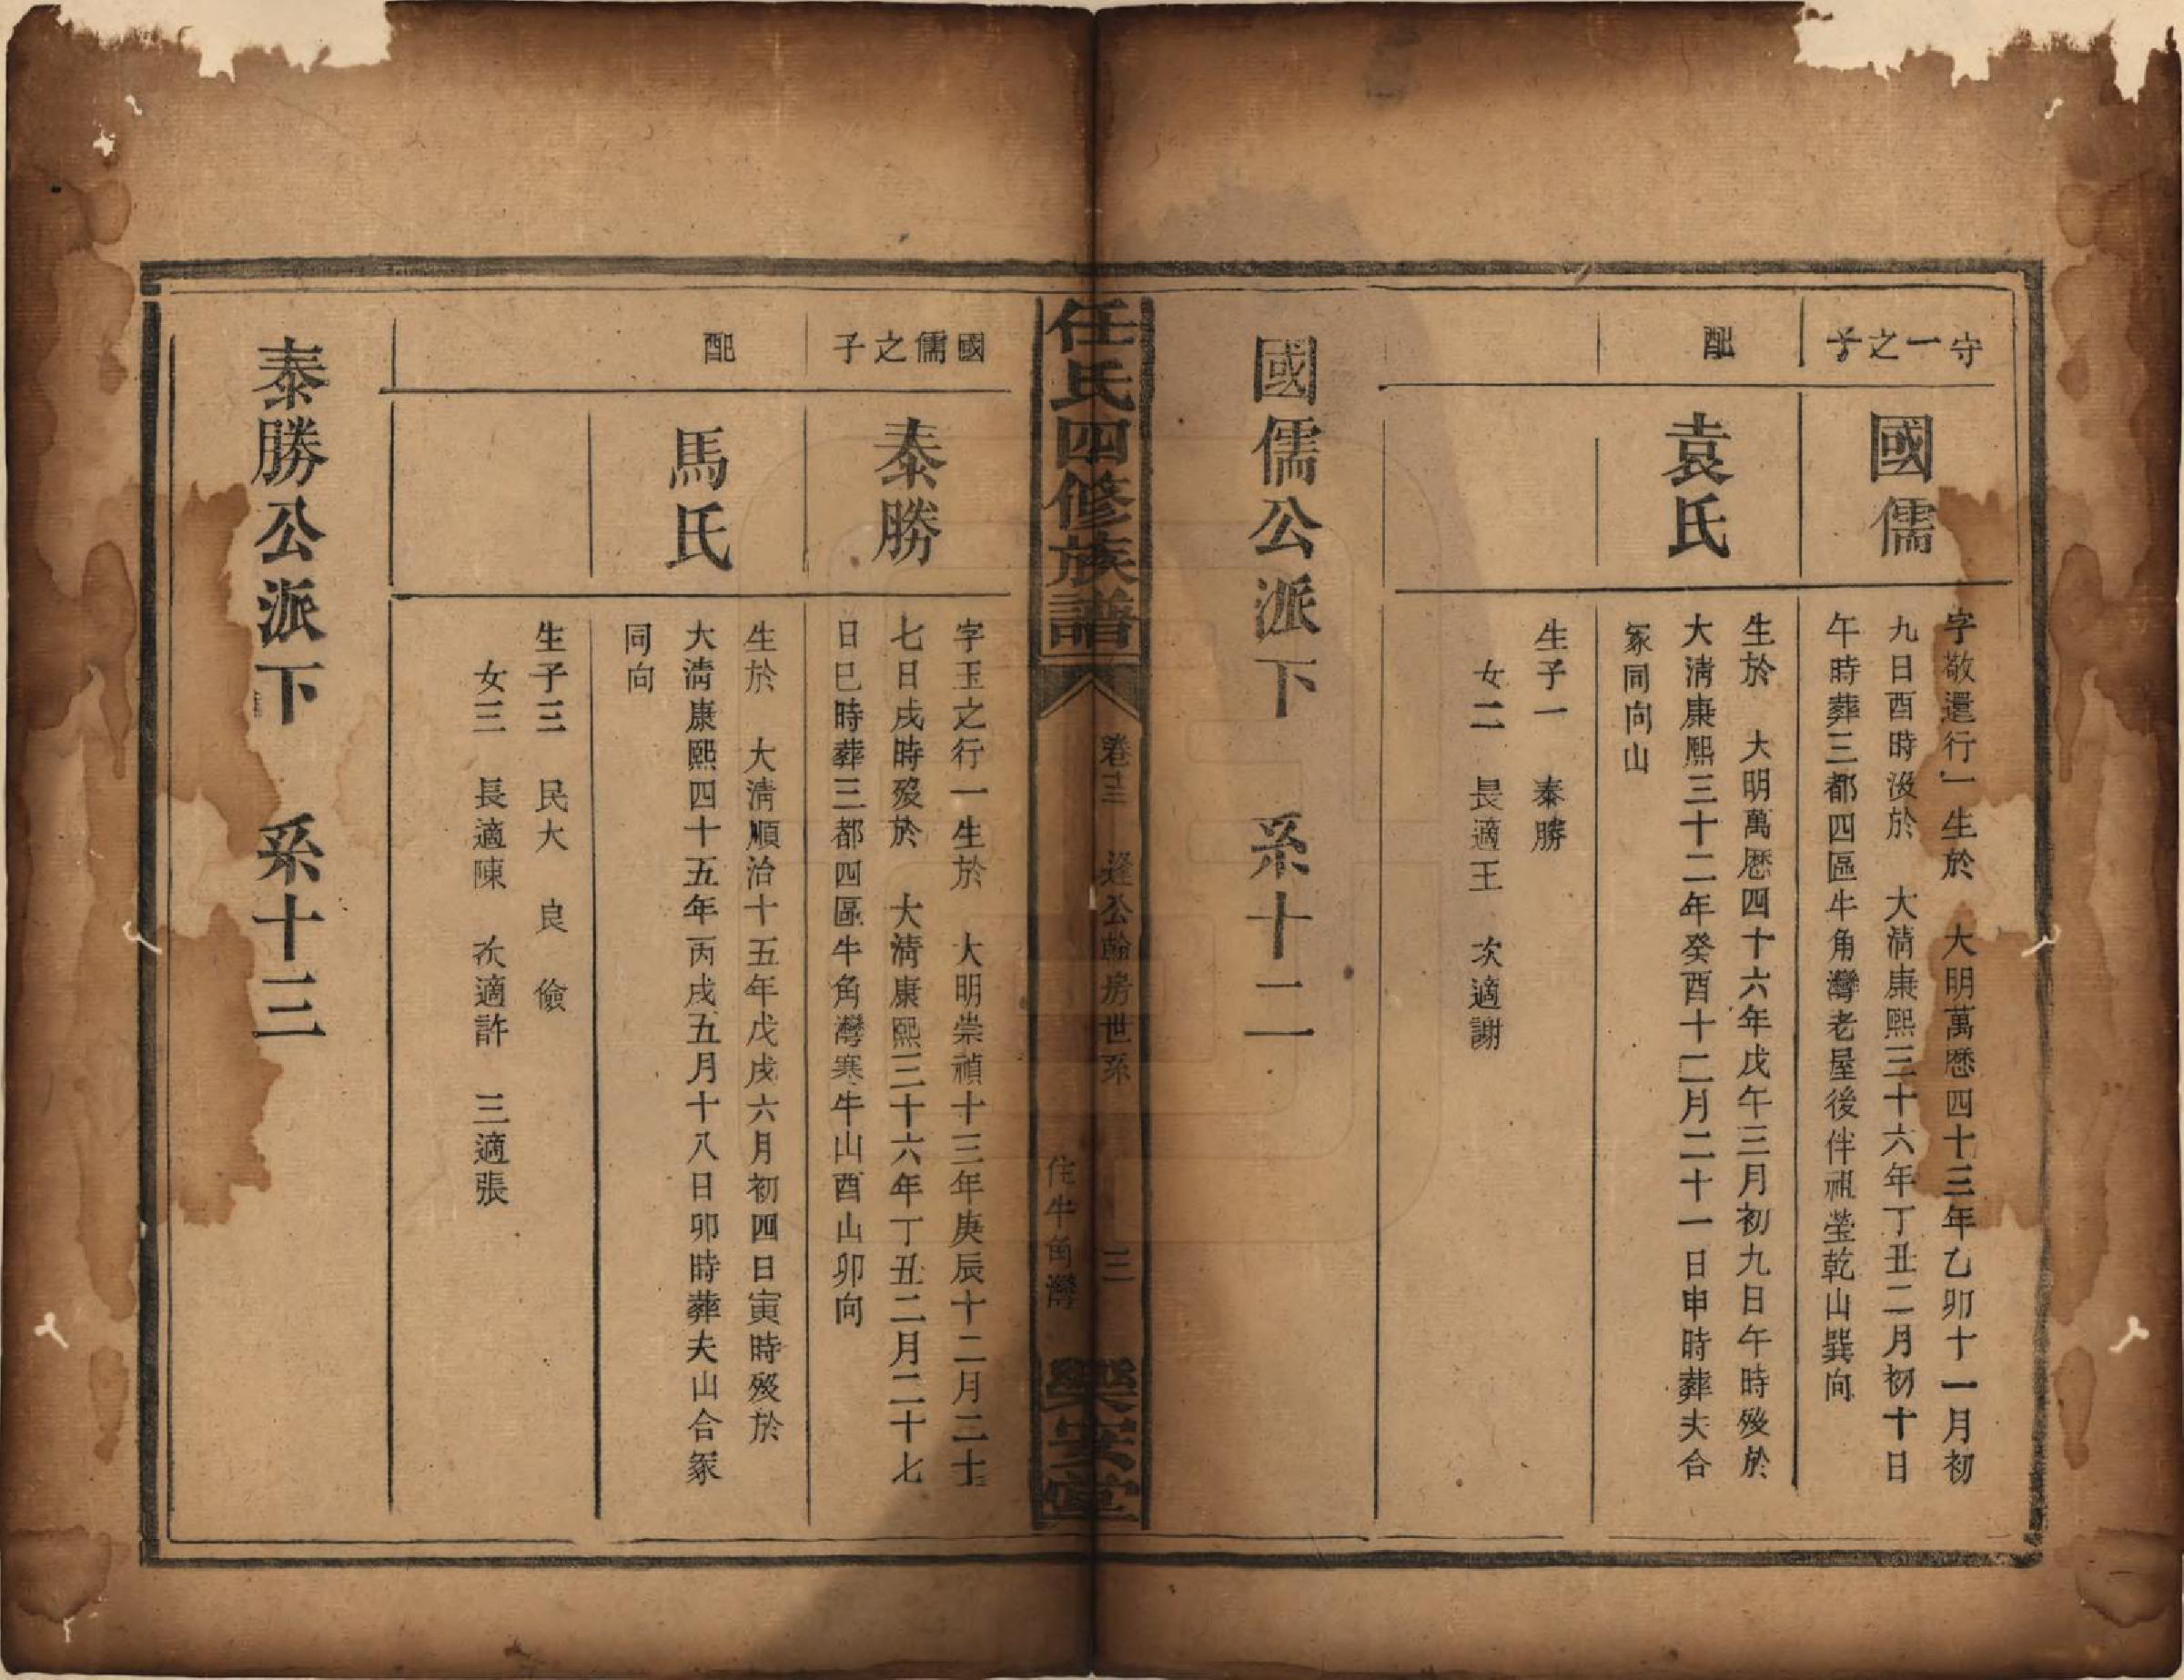 守一之子
國儒
字敬還行一生於　大明萬歷四十三年乙卯十一月初
九日酉時沒於　大淸康熙三十六年丁丑二月初十日
午時葬三都四區牛角灣老屋後伴祖塋乾山巽向
配
袁氏
生於　大明萬歷四十六年戊午三月初九日午時歿於
大淸康熙三十二年癸酉十二月二十一日申時葬夫合
冢同向山
生子一　泰勝
女二　長適王　次適謝
國儒公派下　系十二
任氏四修族譜
卷十三　逢公翰房世系　三
住牛角灣
樂安堂
國儒之子
泰勝
字玉之行一生於　大明崇禎十三年庚辰十二月二十
七日戌時歿於　大淸康熙三十六年丁丑二月二十七
日巳時葬三都四區牛角灣寒牛山酉山卯向
配
馬氏
生於　大淸順治十五年戊戌六月初四日寅時歿於
大淸康熙四十五年丙戌五月十八日卯時葬夫山合冢
同向
生子三　民大　良　儉
女三　長適陳　次適許　三適張
泰勝公派下　系十三